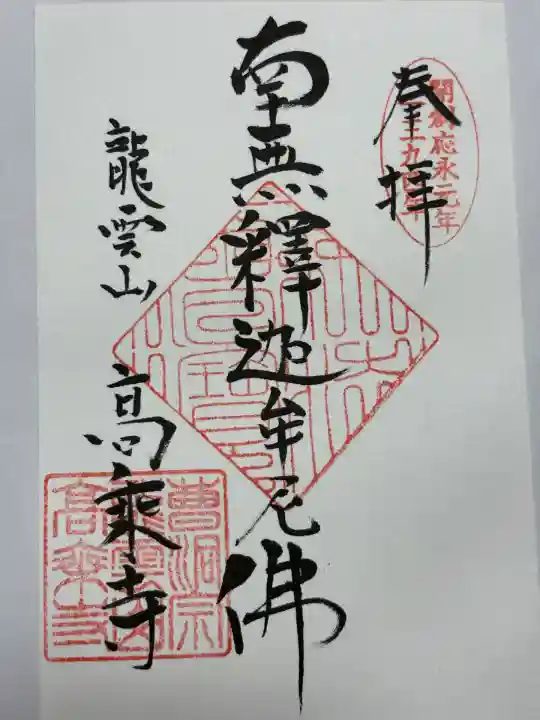 奉拝
開創応永元年
南無釋迦牟尼佛
龍雲山 高乘寺
曹洞宗
龍雲山
高乗寺